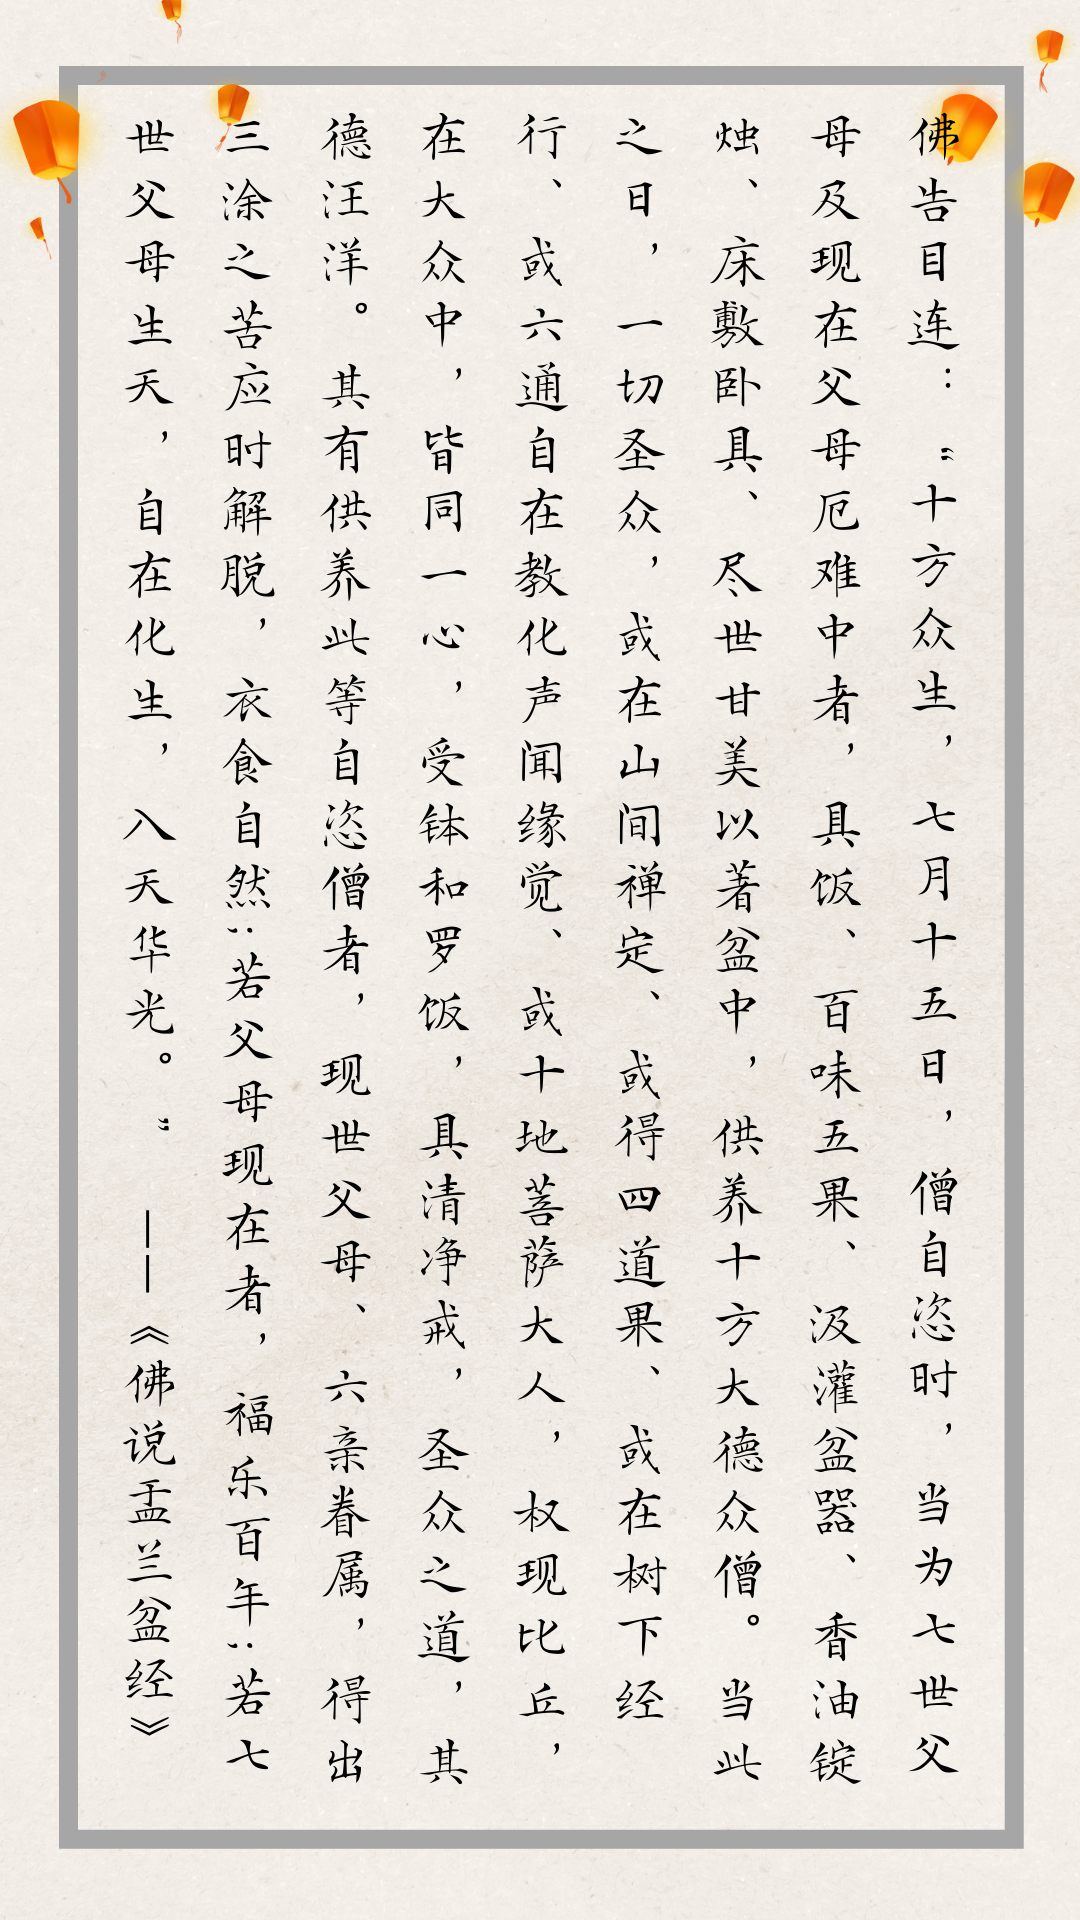 佛告目连：“十方众生，七月十五日，僧自恣时，当为七世父
母及现在父母厄难中者，具饭、百味五果、汲灌盆器、香油锭
烛、床敷卧具、尽世甘美以著盆中，供养十方大德众僧。当此
之日，一切圣众，或在山间禅定、或得四道果、或在树下经
行、或六通自在教化声闻缘觉、或十地菩萨大人，权现比丘，
在大众中，皆同一心，受钵和罗饭，具清净戒，圣众之道，其
德汪洋。其有供养此等自恣僧者，现世父母、六亲眷属，得出
三涂之苦应时解脱，衣食自然；若父母现在者，福乐百年；若七
世父母生天，自在化生，入天华光。”——《佛说盂兰盆经》